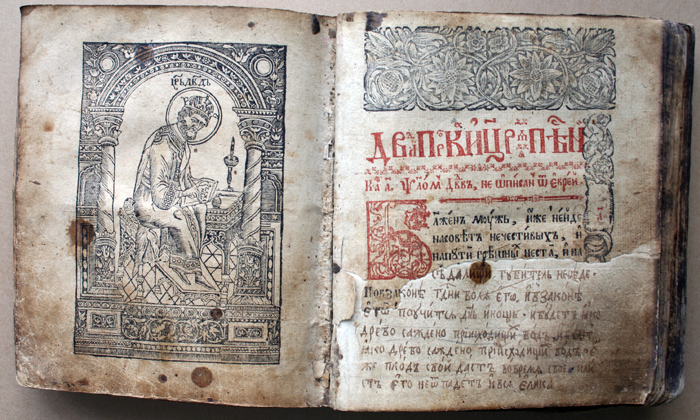 ЦРЬ ДВДЪ
ДВ҃ДА ПРРⷪ҇КА И ЦРѦ҃ ПѢⷭ҇НИ
Ѱалом дв҃дъ, не ѡписан ѿ еврей
Блажен мꙋжь, иже не иде
на совѣт нечестивых, и
на пꙋти грѣшных не ста, и на
сѣдалищи гꙋбитель не сѣде.
Но в законѣ гдни волѧ его, и в законѣ
его поꙋчитсѧ днь и нощь. и бꙋдет ѧко
древо саждено при исходищи вод, и бꙋдет
ѧко древо саждено при исходищи водъ. е
же плод свои дастъ во времѧ свое. и ли
стъ его не ѿпадетъ и всѧ елика